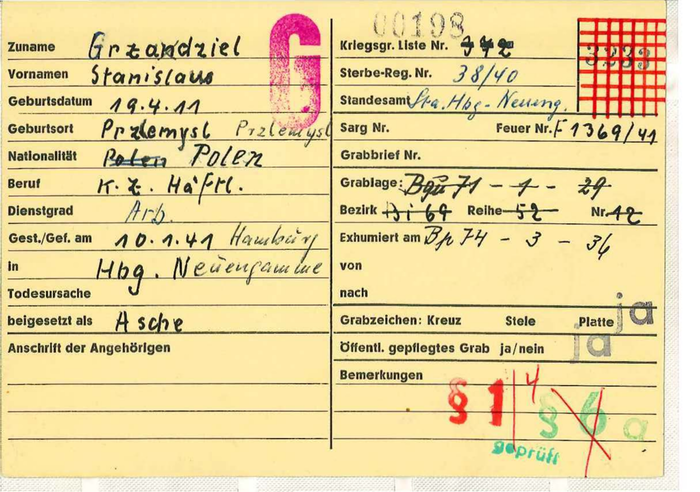 Zuname Grzandziel
Vornamen Stanislaus
Geburtsdatum 19.4.11
Geburtsort Przlemysl Przlemysl
Nationalität Polen Polen
Beruf K.Z. Häftl.
Dienstgrad Arb.
Gest./Gef. am 10.1.41 Hamburg
in Hbg. Neuengamme
Todesursache
beigesetzt als Asche
Anschrift der Angehörigen
G
00198
Kriegsgr. Liste Nr.
3233
Sterbe-Reg. Nr. 38/40
Standesamt Sta. Hbg-Neueng.
Sarg Nr. Feuer Nr. F 1369/41
Grabbrief Nr.
Grablage: Bqu 71 - 1 - 29
Bezirk Bi 69 Reihe 52 Nr. 12
Exhumiert am Bp 74 - 3 - 36
von
nach
Grabzeichen: Kreuz Stele Platte ja
Öffentl. gepflegtes Grab ja/nein ja
Bemerkungen
§ 1/4 § 6 a
geprüft